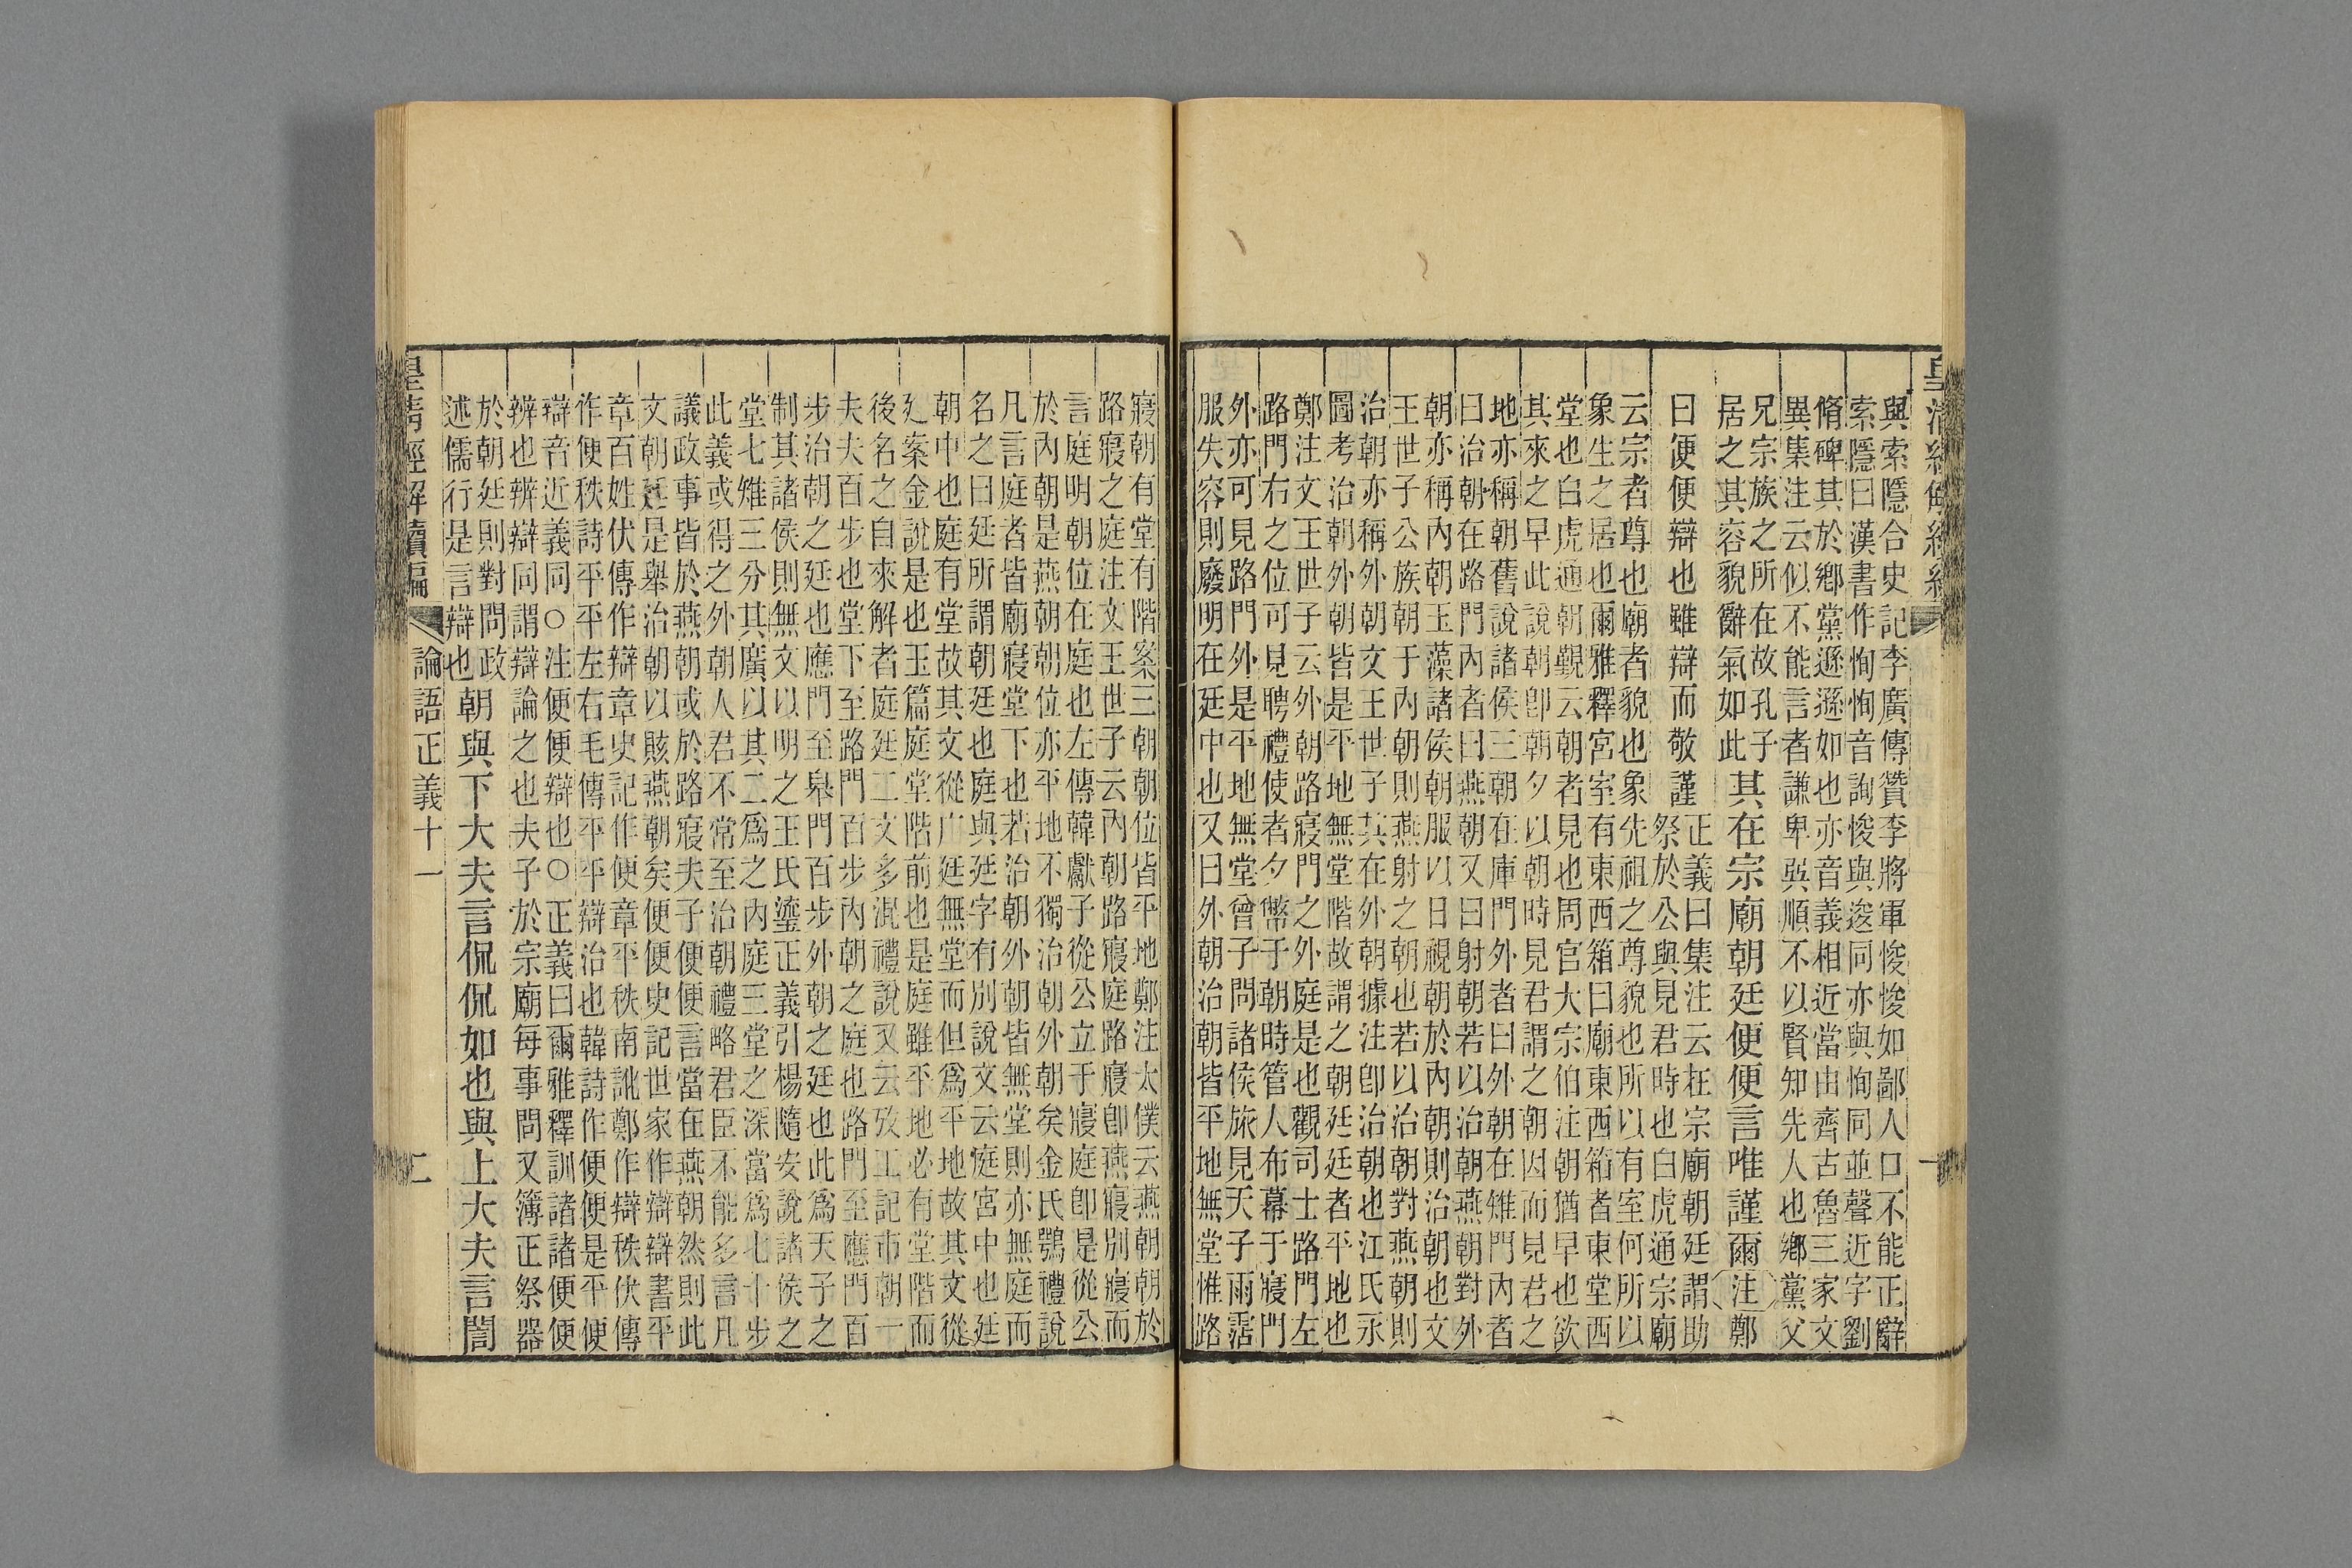 皇清經解續編
與索隱合史記李廣傳贊李將軍悛悛如鄙人口不能正辭
索隱曰漢書作恂恂音詢悛與逡同亦與恂同並聲近字劉
脩碑其於鄉黨遜遜如也亦音義相近當由齊古魯三家文
異集注云似不能言者謙卑㢲順不以賢知先人也鄉黨父
兄宗族之所在故孔子
居之其容貌辭氣如此
其在宗廟朝廷便便言唯謹爾注鄭
曰便便辯也雖辯而敬謹
正義曰集注云在宗廟朝廷謂助
祭於公與見君時也白虎通宗廟
云宗者尊也廟者貌也象先祖之尊貌也所以有室何所以
象生之居也爾雅釋宮室有東西箱曰廟東西箱者東堂西
堂也白虎通朝覲云朝者見也周官大宗伯注朝猶早也欲
其來之早此說朝卽朝夕以朝時見君謂之朝因而見君之
地亦稱朝舊說諸侯三朝在庫門外者曰外朝在雉門內者
曰治朝在路門內者曰燕朝又曰射朝若以治朝燕朝對外
朝亦稱內朝玉藻諸侯朝服以日視朝於內朝則治朝也文
王世子公族朝于內朝則燕射之朝也若以治朝對燕朝則
治朝亦稱外朝文王世子其在外朝據注卽治朝也江氏永
圖考治朝外朝皆是平地無堂階故謂之朝廷廷者平地也
鄭注文王世子云外朝路寢門之外庭是也觀司士路門左
路門右之位可見聘禮使者夕幣于朝時管人布幕于寢門
外亦可見路門外是平地無堂曾子問諸侯旅見天子雨霑
服失容則廢明在廷中也又曰外朝治朝皆平地無堂惟路
寢朝有堂有階案三朝朝位皆平地鄭注太僕云燕朝朝於
路寢之庭注文王世子云內朝路寢庭路寢卽燕寢別寢而
言庭明朝位在庭也左傳韓獻子從公立于寢庭卽是從公
於內朝是燕朝朝位亦平地不獨治朝外朝矣金氏鶚禮說
凡言庭者皆廟寢堂下也若治朝外朝皆無堂則亦無庭而
名之曰廷所謂朝廷也庭與廷字有別說文云庭宮中也廷
朝中也庭有堂故其文從广廷無堂而但為平地故其文從
廴案金說是也玉篇庭堂階前也是庭雖平地必有堂階而
後名之自來解者庭廷二文多混禮說又云攷工記市朝一
夫夫百步也堂下至路門百步內朝之庭也路門至應門百
步治朝之廷也應門至皋門百步外朝之廷也此為天子之
制其諸侯則無文以明之王氏瑬正義引楊隨安說諸侯之
堂七雉三分其廣以其二為之內庭三堂之深當為七十步
此義或得之外朝人君不常至治朝禮略君臣不能多言凡
議政事皆於燕朝或於路寢夫子便便言當在燕朝然則此
文朝廷是舉治朝以賅燕朝矣便便史記世家作辯辯書平
章百姓伏傳作辯章史記作便章平秩南訛鄭作辯秩伏傳
作便秩詩平平左右毛傳平平辯治也韓詩作便便是平便
辯音近義同〇注便便辯也〇正義曰爾雅釋訓諸諸便便
辨也辨辯同謂辯論之也夫子於宗廟每事問又簿正祭器
於朝廷則對問政
述儒行是言辯也
朝與下大夫言侃侃如也與上大夫言誾
皇清經解續編
論語正義十一
二